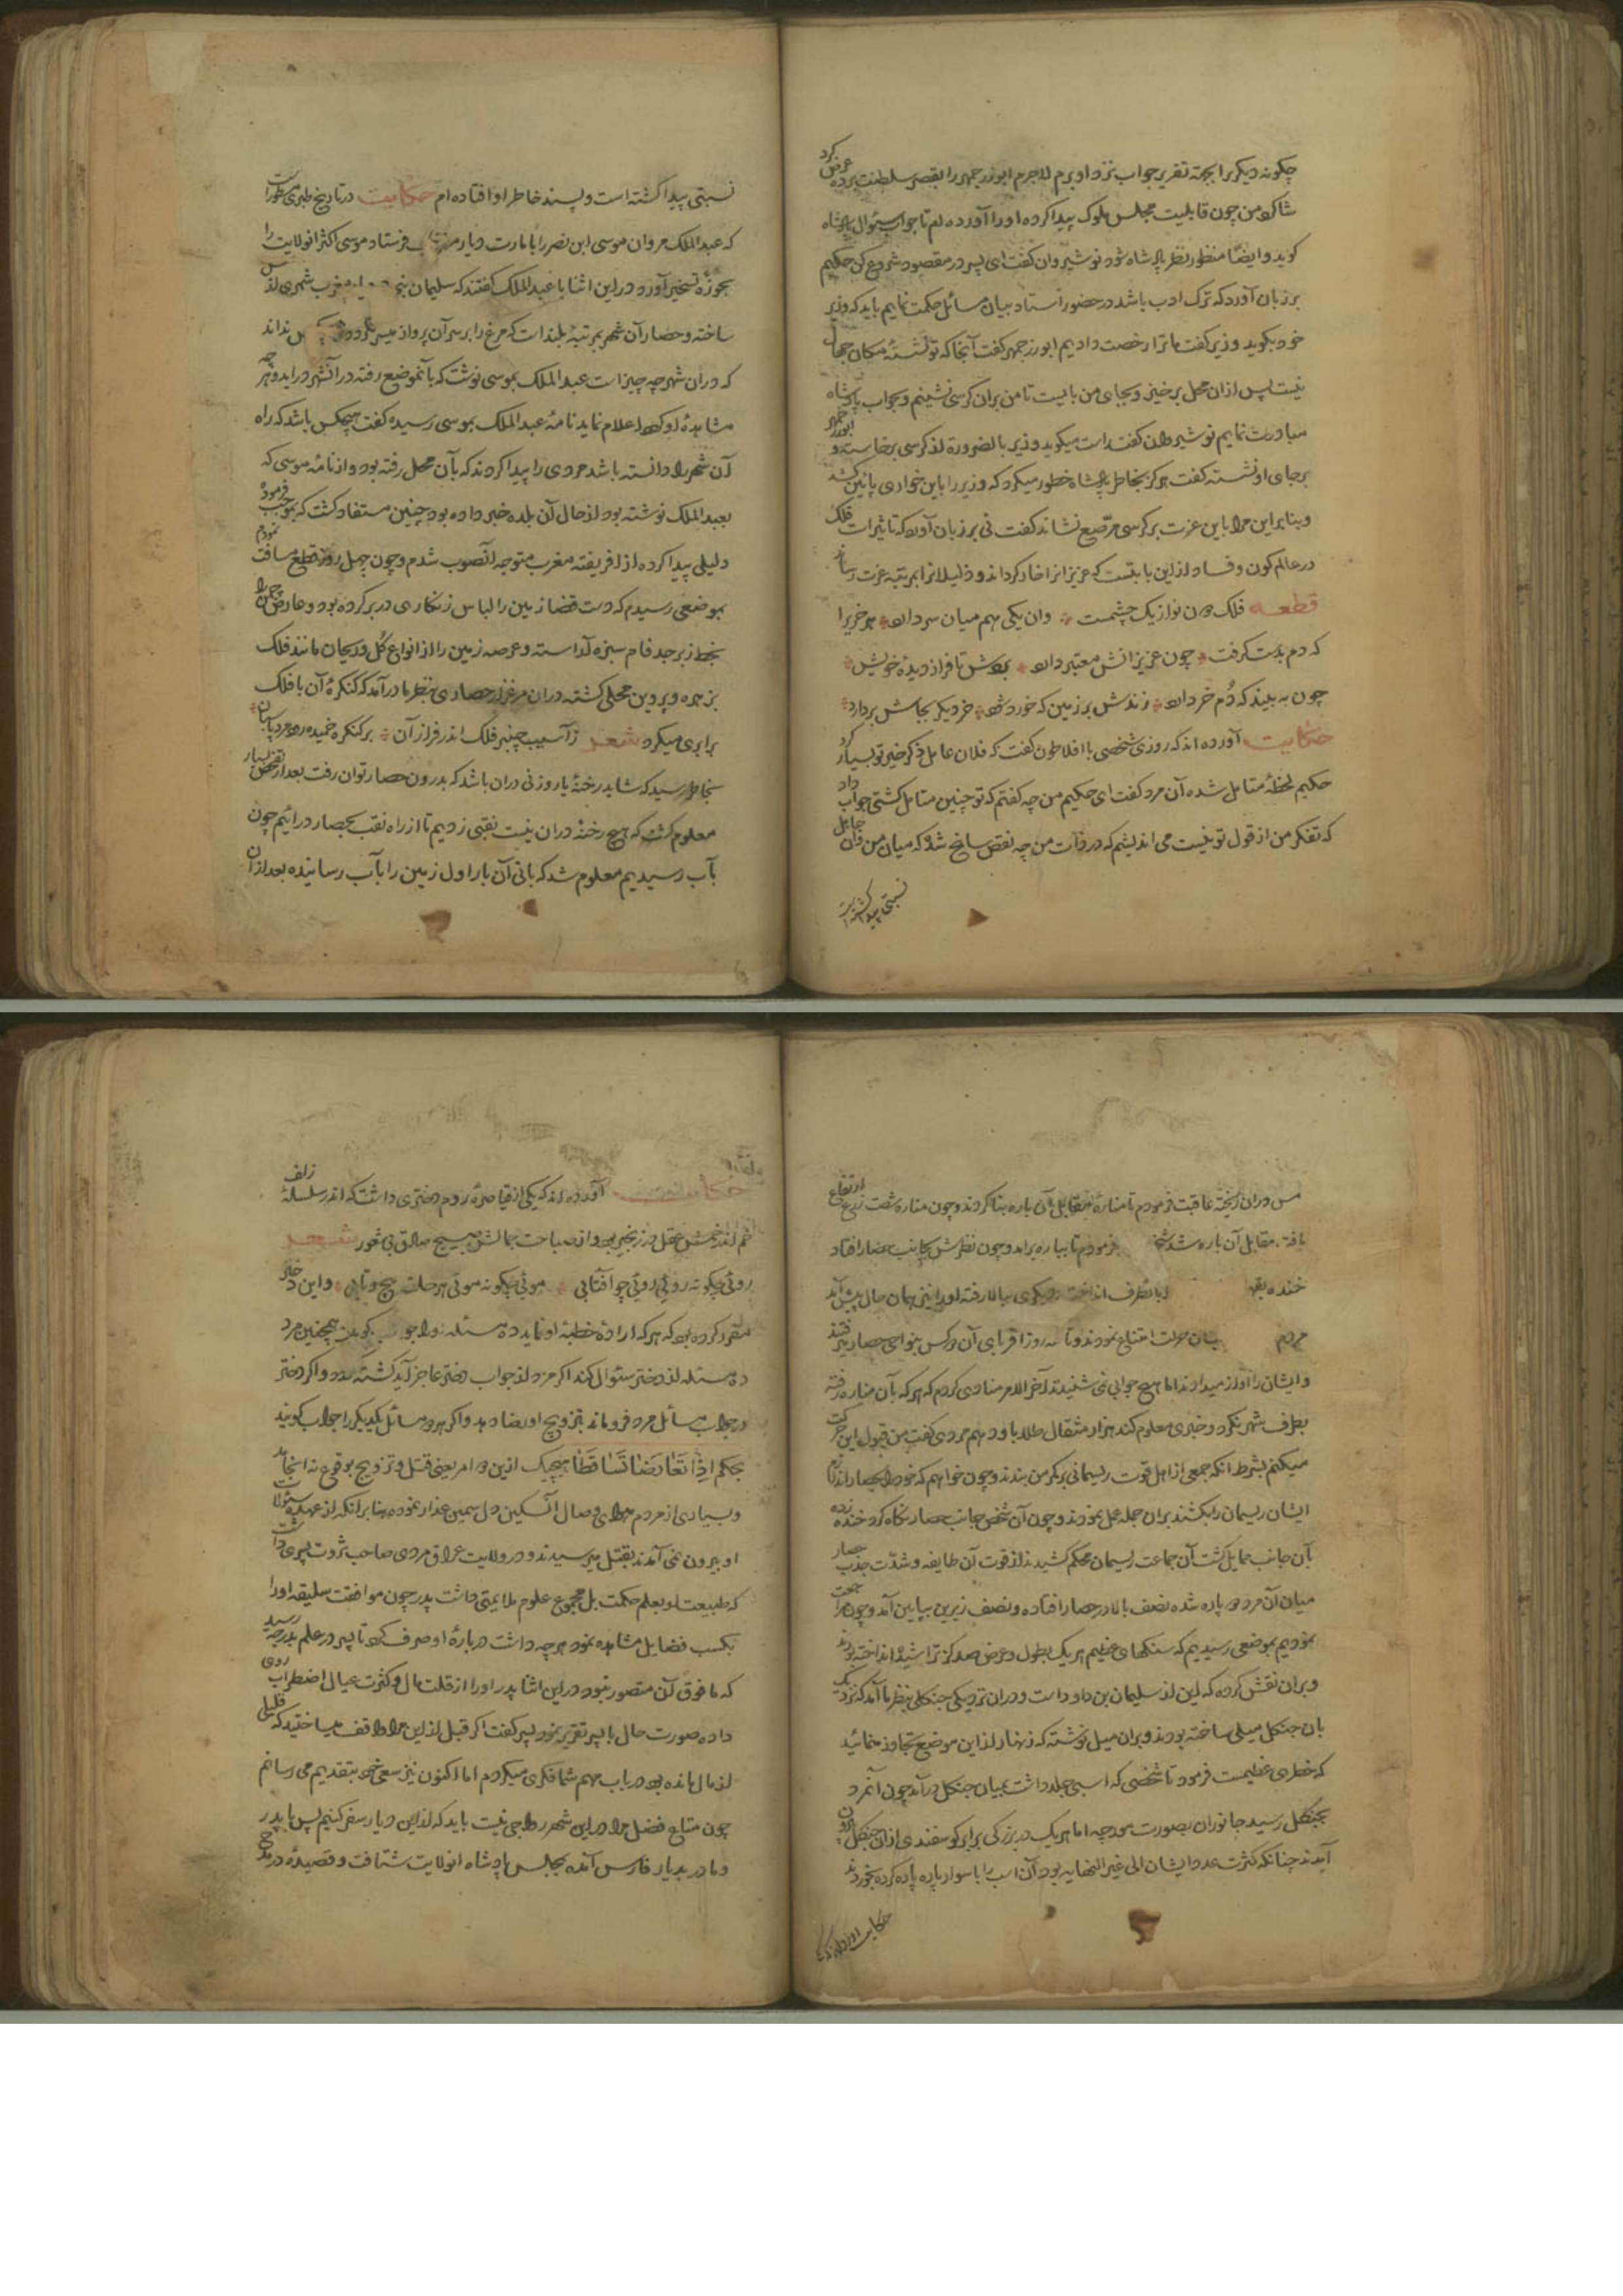 چگونه دیگر برا بجهة تقریر جواب نزد او برم لاجرم ابوزرجمهر را بقصر سلطنت برده عرض کرد
شاکرد من چون قابلیت مجلس ملوک پیدا کرده او را آورده ام تا جواب سئوال پادشاه
کوید و ایضا منظور نظر پادشاه شود نوشیروان کفت ای پسر در مقصود شروع کن حکیم
بر زبان آورد که ترک ادب باشد در حضور استاد بیان مسائل حکمت نمایم باید که وزیر
خود بکوید وزیر کفت ما ترا رخصت دادیم ابوزرجمهر کفت آنجا که تو نشستهٔ مکان جهال
نیست پس از ان محل برخیز و بجای من بایست تا من بران کرسی نشینم و بجواب پادشاه
مبادرت نمایم نوشیروان کفت راست میکوید وزیر بالضرورة از کرسی برخاسته و ابوزرجمهر
برجای او نشسته کفت هرکز بخاطر پادشاه خطور میکرد که وزیر را باین خواری پائین کشد
و بنابراین مرا باین عزت بر کرسی مرصع نشاند کفت نی بر زبان آورد که تاثیرات فلک
در عالم کون و فساد از این بابتست که عزیزانرا خوار کرداند و ذلیلانرا بمرتبهٔ عزت رساند
قطعه فلک دون نواز یک چشمست وان یکی هم میان سر دارد هر خریرا
که دم بدست کرفت چون عزیزانش معتبر دارد بردش تا فراز دیدهٔ خویش
چون به بیند که دُم خر دارد زندش بر زمین که خورد شود خر دیکر بجاش بردارد
حکایت آورده اند که روزی شخصی با افلاطون کفت که فلان عامل ذکر خیر تو بسیار کرد
حکیم لحظهٔ متامل شده آن مرد کفت ای حکیم من چه کفتم که تو چنین متامل کشتی جواب داد
که تفکر من از قول تو نیست می اندیشم که در ذات من چه نقص سانح شد که میان من و آن جاهل
نسبتی پیدا کشته است
نسبتی پیدا کشته است و پسند خاطر او افتاده ام حکایت در تاریخ طبری مسطورست
که عبدالملک مروان موسی ابن نصر را بامارت دیار مغرب فرستاد موسی اکثر انولایت را
بحوزهٔ تسخیر آورد و در این اثنا با عبدالملک کفتند که سلیمان مغرب شهری از مس
ساخته و حصار آن شهر بمرتبهٔ بلند است که مرغ را بر سر آن پرواز میسر نکردد و نداند
که در ان شهر چه چیز است عبدالملک بموسی نوشت که بآنموضع رفته در آنشهر در اید و هر چه
مشاهدهٔ او کردد اعلام نماید نامهٔ عبدالملک بموسی رسیده کفت هیچکس باشد که راه
آن شهر را دانسته باشد مردی را پیدا کردند که بآن محل رفته بود و از نامهٔ موسی که
بعبدالملک نوشته بود از حال آن بلده خبر داده بود چنین مستفاد کشت که بموجب فرموده
دلیلی پیدا کرده از افریقیه مغرب متوجه آنصوب شدم و چون چهل روز قطع مسافت نمودم
بموضعی رسیدم که دست قضا زمین را لباس زنکاری در بر کرده بود و عارض چمن را
بخط زبرجد فام سبزه آراسته و عرصه زمین را از انواع کُل و ریحان مانند فلک
بزهره و پروین محلی کشته در ان مرغزار حصاری بنظر ما در آمد که کنکرهٔ آن با فلک
برابری میکرد شعر ز آسیب چنبر فلک اندر فراز آن بر کنکره خمیده رود مرد پاسبان
بخاطر رسید که شاید رخنهٔ یا روزنی دران باشد که بدرون حصار توان رفت بعد از تفحص بسیار
معلوم کشت که هیچ رخنهٔ دران نیست نقبی زدیم تا از راه نقب بحصار درائیم چون
بآب رسیدیم معلوم شد که بانی آن باره اول زمین را بآب رسانیده بعد از ان
مس دران ریخته عاقبت فرمودم تا منارهٔ مقابل آن باره بنا کردند و چون مناره شصت ذرع ارتفاع
یافت مقابل آن باره شد فرمودم تا بباره براید و چون نظرش بجانب حصار افتاد
خنده انداخت دیکری ببالا رفته او را نیز همان حال پیش آمد
مردم امتناع نمودند و تا سه روز اقربای آن دو کس بنواحی حصار میرفتند
و ایشان را آواز میدادند اما هیچ جوابی نمی شنیدند آخر الامر منادی کردم که هر که بآن مناره رفته
بطرف شهر نکرد و خبری معلوم کند هزار مثقال طلا باو دهم مردی کفت من قبول این حرکت
میکنم بشرط آنکه جمعی از اهل قوت ریسمانی بر کمر من بندند و چون خواهم که خود را بحصار اندازم
ایشان ریسمان را بکشند بران جمله عمل نمودند و چون آن شخص جانب حصار نکاه کرد خنده زده
بآن جانب مایل کشت آن جماعت ریسمان محکم کشیدند از قوت آن طایفه و شدت جذب حصار
میان آن مرد دو پاره شده نصف بالا در حصار افتاده و نصف زیرین بپایین آمد و چون مراجعت
نمودیم بموضعی رسیدیم که سنکهای عظیم هر یک بطول و عرض صد کز تراشیده انداخته بودند
و بران نقش کرده که این از سلیمان بن داود است و دران نزدیکی جنکلی بنظر ما آمد که نزدیک
بان جنکل میلی ساخته بودند و بران میل نوشته که زنهار از این موضع تجاوز منمائید
که خطری عظیمست فرمود تا شخصی که اسبی جلد داشت بمیان جنکل درآمد چون آنمرد
بجنکل رسید جانوران بصورت مورچه اما هر یک در بزرکی برابر کوسفندی از ان جنکل بیرون
آمدند چنانکه کثرت عدد ایشان الی غیر النهایه بود آن اسب را با سوار پاره پاره کرده بخوردند
حکایت آورده اند که
حکایت آورده اند که یکی از قیاصرهٔ روم دختری داشت که اندر سلسلهٔ زلف
خم اندر خمش عقل در زنجیر بود و از صباحت جمالش مسیح صادق بی نور شعر
روئی چکونه روئی روئی چو آفتابی موئی چکونه موئی هر حلقه پیچ و تابی و این دختر
مقرر کرده بود که هر که ارادهٔ خطبهٔ او نماید ده مسئله او را جواب کوید و همچنین مرد
ده مسئله از دختر سئوال کند اکر مرد از جواب دختر عاجز آید کشته کردد و اکر دختر
در جواب مسائل مرد فروماند بتزویج او رضا دهد و اکر هر دو مسائل یکدیکر را جواب کویند
بحکم اِذا تَعَارَضَا تَسَاقَطَا هیچیک ازین دو امر یعنی قتل و تزویج بوقوع نه انجامد
و بسیاری از مردم بهوای وصال آن سنکین دل سیمین عذار نموده بنابر آنکه از عهدهٔ سئولات
او بیرون نمی آمدند بقتل میرسیدند و در ولایت عراق مردی صاحب ثروت پسری داشت
که طبیعت او بعلم حکمت بل مجموع علوم ملایمتی داشت پدر چون موافقت سلیقه او را
بکسب فضایل مشاهده نمود هر چه داشت دربارهٔ او صرف کرد تا پسر در علم بدرجهٔ رسید
که ما فوق آن متصور نبود در این اثنا پدر او را از قلت مال و کثرت عیال اضطراب روی
داده صورت حال با پسر تقریر نمود پسر کفت اکر قبل از این مرا واقف میساختید که قلیلی
از مال مانده بود در باب مهم شما فکری میکردم اما اکنون نیز سعی خود بتقدیم می رسانم
چون متاع فضل مرا در این شهر رواجی نیست باید که از این دیار سفر کنیم پس با پدر
و مادر بدیار فارس آمده بمجلس پادشاه انولایت شتافت و قصیدهٔ در مدح